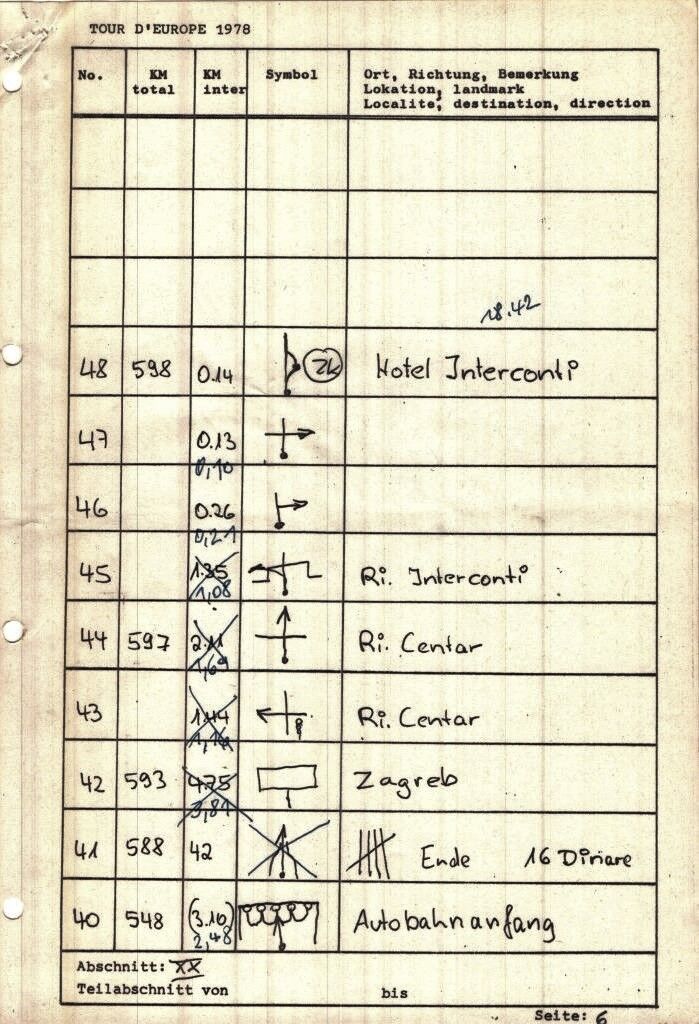 TOUR D'EUROPE 1978
No. KM total KM inter Symbol Ort, Richtung, Bemerkung
Lokation, landmark
Localite, destination, direction
18.42
48 598 0.14 ZK Hotel Interconti
47 0.13
0,10
46 0.26
0,21
45 1.35 Ri. Interconti
1,08
44 597 2.11 Ri. Centar
1,69
43 1.44 Ri. Centar
42 593 4.75 Zagreb
3,81
41 588 42 Ende 16 Dinare
40 548 (3.10) Autobahnanfang
2,48
Abschnitt: XX
Teilabschnitt von bis
Seite: 6